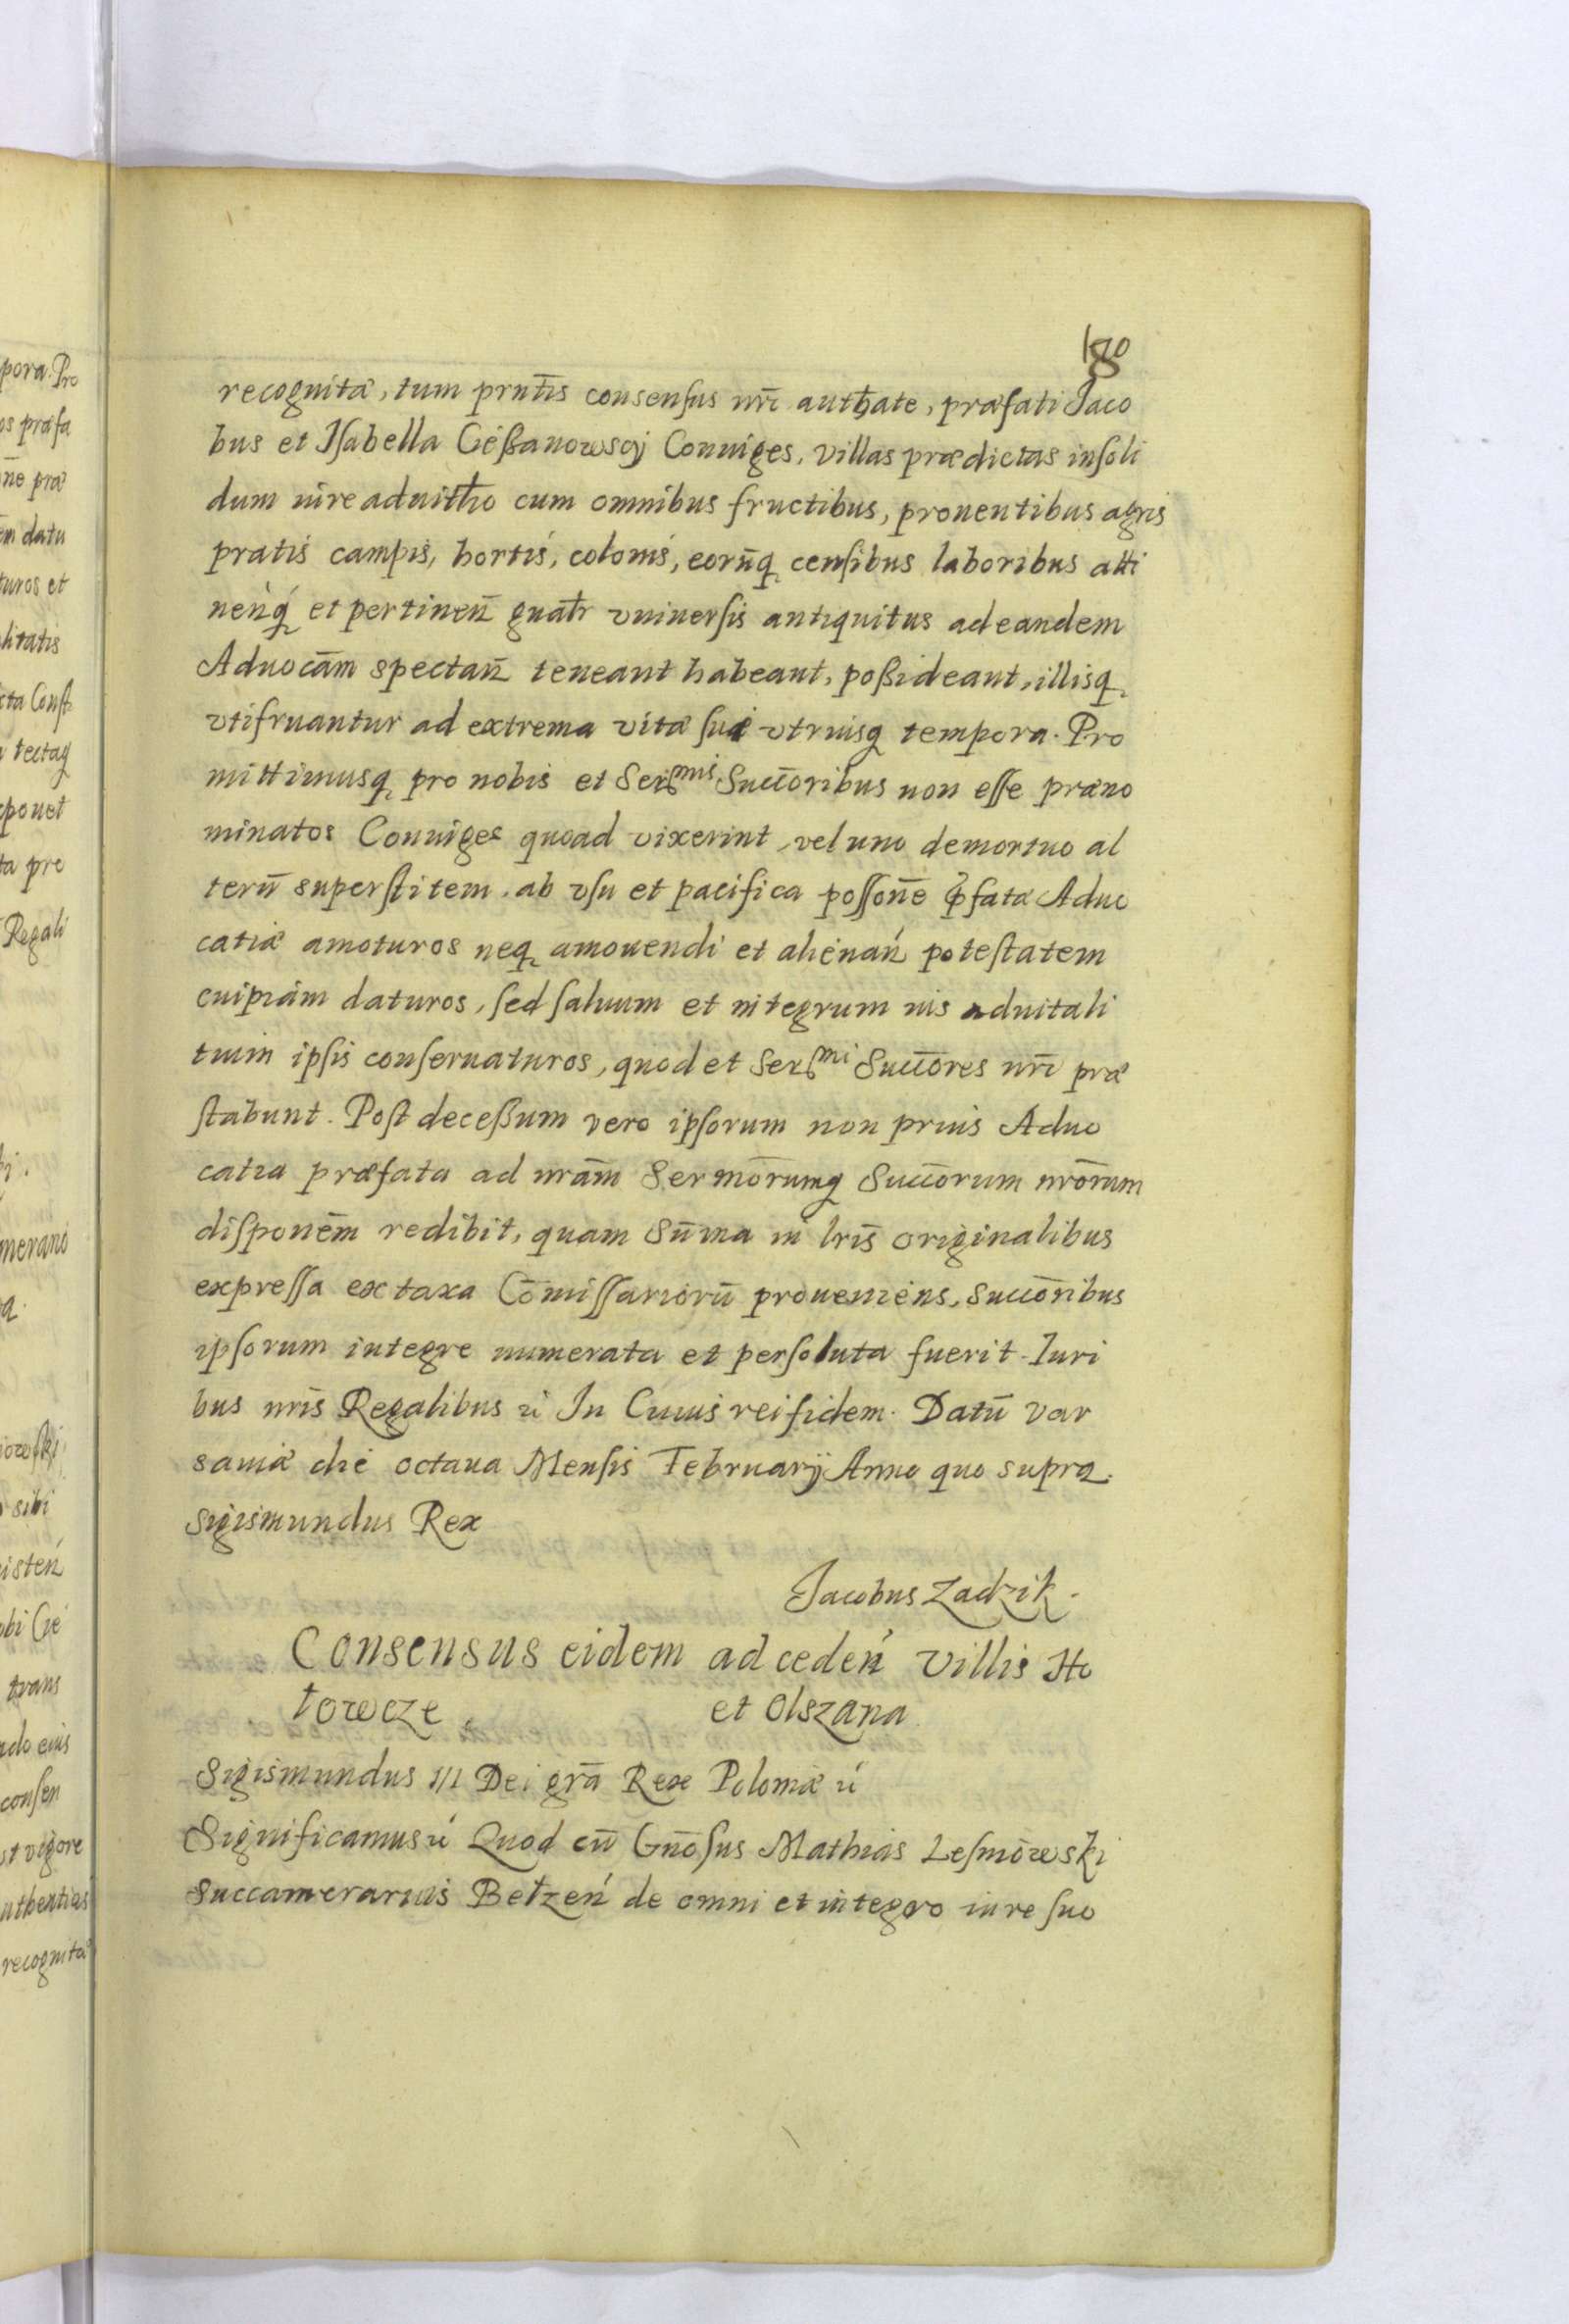 180
recognitæ, tum prñtis consensus nrĩ authate, præfati Jaco
bus et Isabella Cießanowscÿ Coniuges, villas prædictas insoli
dum iure aduitłio cum omnibus fructibus, prouentibus agris
pratis campis, hortis, colonis, eorũq censibus laboribus atti
nenq́ et pertinen̄ gnałr vniuersis antiquitus ad eandem
Aduocãm spectan̄ teneant habeant, poßideant, illisq
vtifruantur ad extrema vitæ suæ vtriusq tempora. Pro
mittimusq pro nobis et Sermis Succoribus non esse præno
minatos Coniuges quoad vixerint, vel uno demortuo al
terũ superstitem, ab vsu et pacifica possone p̃fatæ Aduo
catiæ amoturos neq amouendi et alienan potestatem
cuipiam daturos, sed saluum et integrum ius aduitali
tium ipsis conseruaturos, quod et Sermi Succores nrĩ præ
stabunt. Post deceßum vero ipsorum non prius Aduo
catia præfata ad nrãm Sermorumq Succorum nrõrum
disponem redibit, quam Sũma in lris originalibus
expressa ex taxa Cõmissariorũ proueniens, succoribus
ipsorum integre numerata et persoluta fuerit. Iuri
bus nris Regalibus ú In Cuius rei fidem. Datũ Var
sauiæ die octaua Mensis Februarÿ Anno quo supra.
Sigismundus Rex
Jacobus Zadzik.
Consensus eidem ad ceden villis Ho
towcze et Olszana
Sigismundus III Dei grã Rex Poloniæ ú
Significamus ú Quod cũ Gnõsus Mathias Lesniowski
Succamerarius Bełzen de omni et integro iure suo